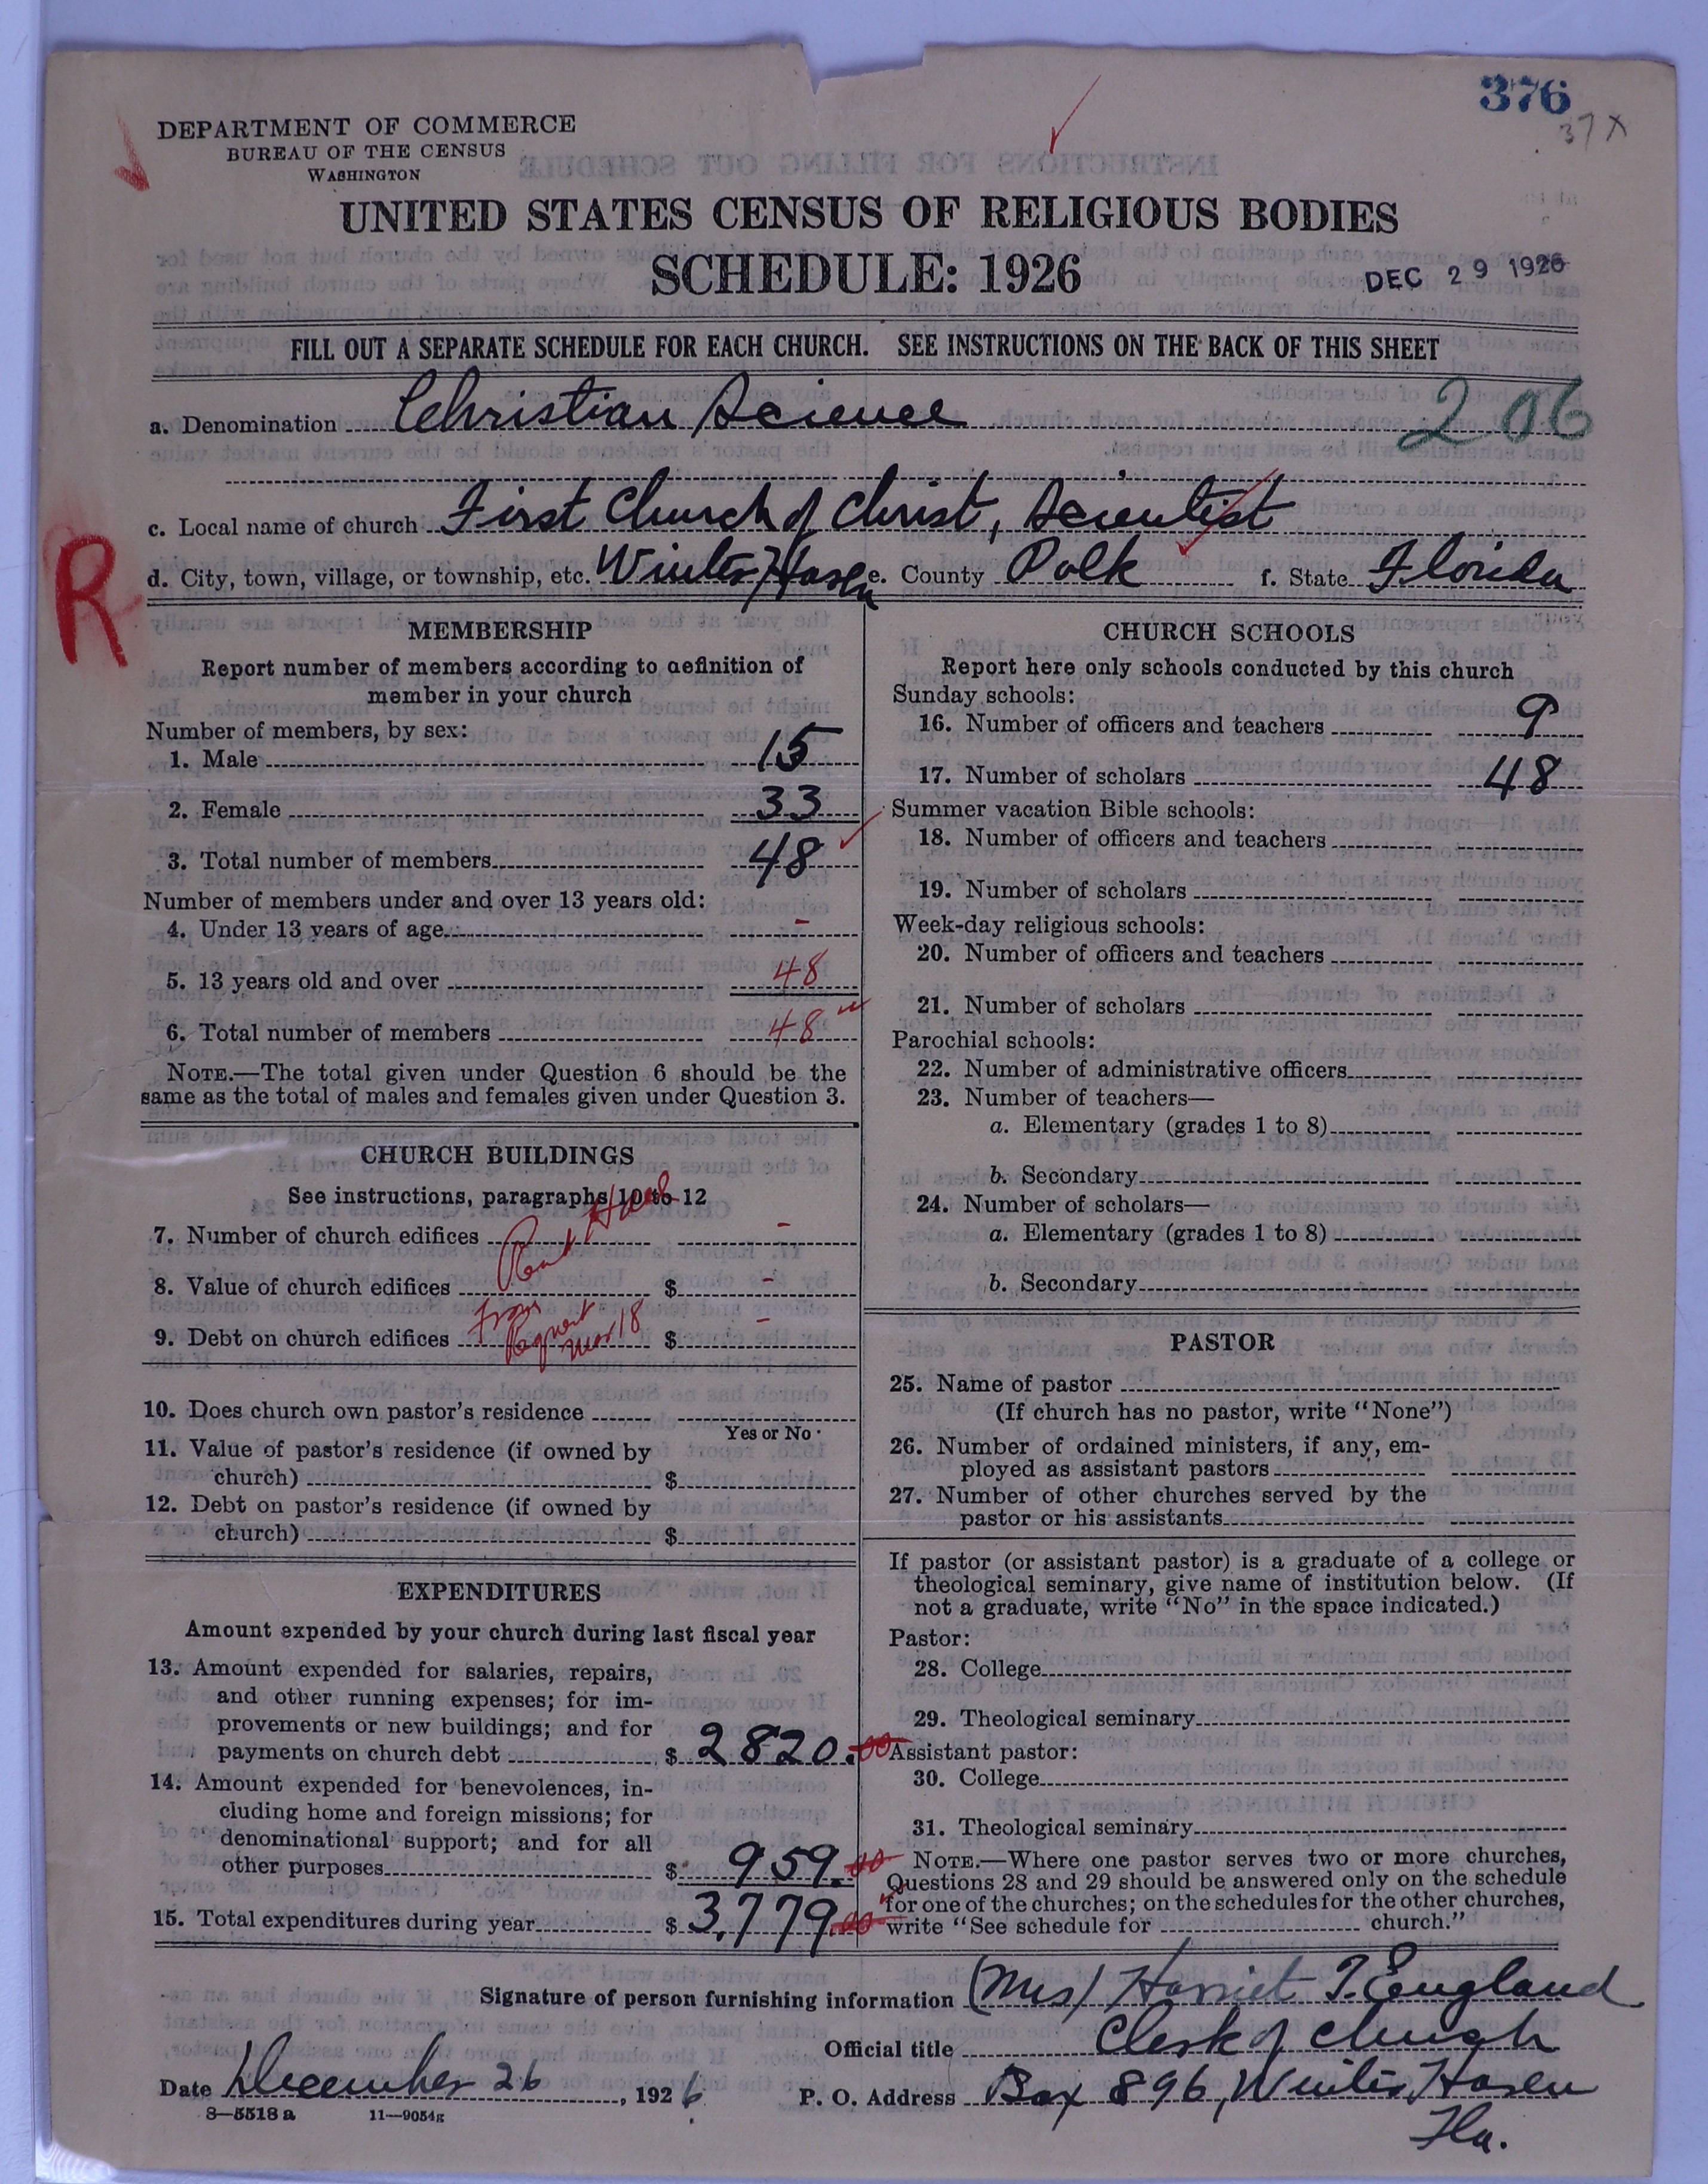 376
37X
DEPARTMENT OF COMMERCE
BUREAU OF THE CENSUS
WASHINGTON
UNITED STATES CENSUS OF RELIGIOUS BODIES
SCHEDULE: 1926
DEC 29 1926
FILL OUT A SEPARATE SCHEDULE FOR EACH CHURCH. SEE INSTRUCTIONS ON THE BACK OF THIS SHEET
a. Denomination Christian Science 206
c. Local name of church First Church of Christ, Scientist
R
d. City, town, village, or township, etc. Winter Haven e. County Polk f. State Florida
MEMBERSHIP
Report number of members according to definition of
member in your church
Number of members, by sex:
1. Male 15
2. Female 33
3. Total number of members 48
Number of members under and over 13 years old:
4. Under 13 years of age -
5. 13 years old and over 48
6. Total number of members 48
NOTE.—The total given under Question 6 should be the
same as the total of males and females given under Question 3.
CHURCH BUILDINGS
See instructions, paragraphs 10 to 12
Rent Hall
7. Number of church edifices -
8. Value of church edifices $ -
From
Report
Mar 18
9. Debt on church edifices $ -
10. Does church own pastor's residence
Yes or No
11. Value of pastor's residence (if owned by
church) $
12. Debt on pastor's residence (if owned by
church) $
EXPENDITURES
Amount expended by your church during last fiscal year
13. Amount expended for salaries, repairs,
and other running expenses; for im-
provements or new buildings; and for
payments on church debt $ 2820.00
14. Amount expended for benevolences, in-
cluding home and foreign missions; for
denominational support; and for all
other purposes $ 959.00
15. Total expenditures during year $ 3,779.00
CHURCH SCHOOLS
Report here only schools conducted by this church
Sunday schools:
16. Number of officers and teachers 9
17. Number of scholars 48
Summer vacation Bible schools:
18. Number of officers and teachers
19. Number of scholars
Week-day religious schools:
20. Number of officers and teachers
21. Number of scholars
Parochial schools:
22. Number of administrative officers
23. Number of teachers—
a. Elementary (grades 1 to 8)
b. Secondary
24. Number of scholars—
a. Elementary (grades 1 to 8)
b. Secondary
PASTOR
25. Name of pastor
(If church has no pastor, write "None")
26. Number of ordained ministers, if any, em-
ployed as assistant pastors
27. Number of other churches served by the
pastor or his assistants
If pastor (or assistant pastor) is a graduate of a college or
theological seminary, give name of institution below. (If
not a graduate, write "No" in the space indicated.)
Pastor:
28. College
29. Theological seminary
Assistant pastor:
30. College
31. Theological seminary
NOTE.—Where one pastor serves two or more churches,
Questions 28 and 29 should be answered only on the schedule
for one of the churches; on the schedules for the other churches,
write "See schedule for church."
Signature of person furnishing information (Mrs) Harriet T. England
Official title Clerk of Church
Date December 26, 1926 P. O. Address Box 896, Winter Haven
Fla.
8—5518 a 11—9054g